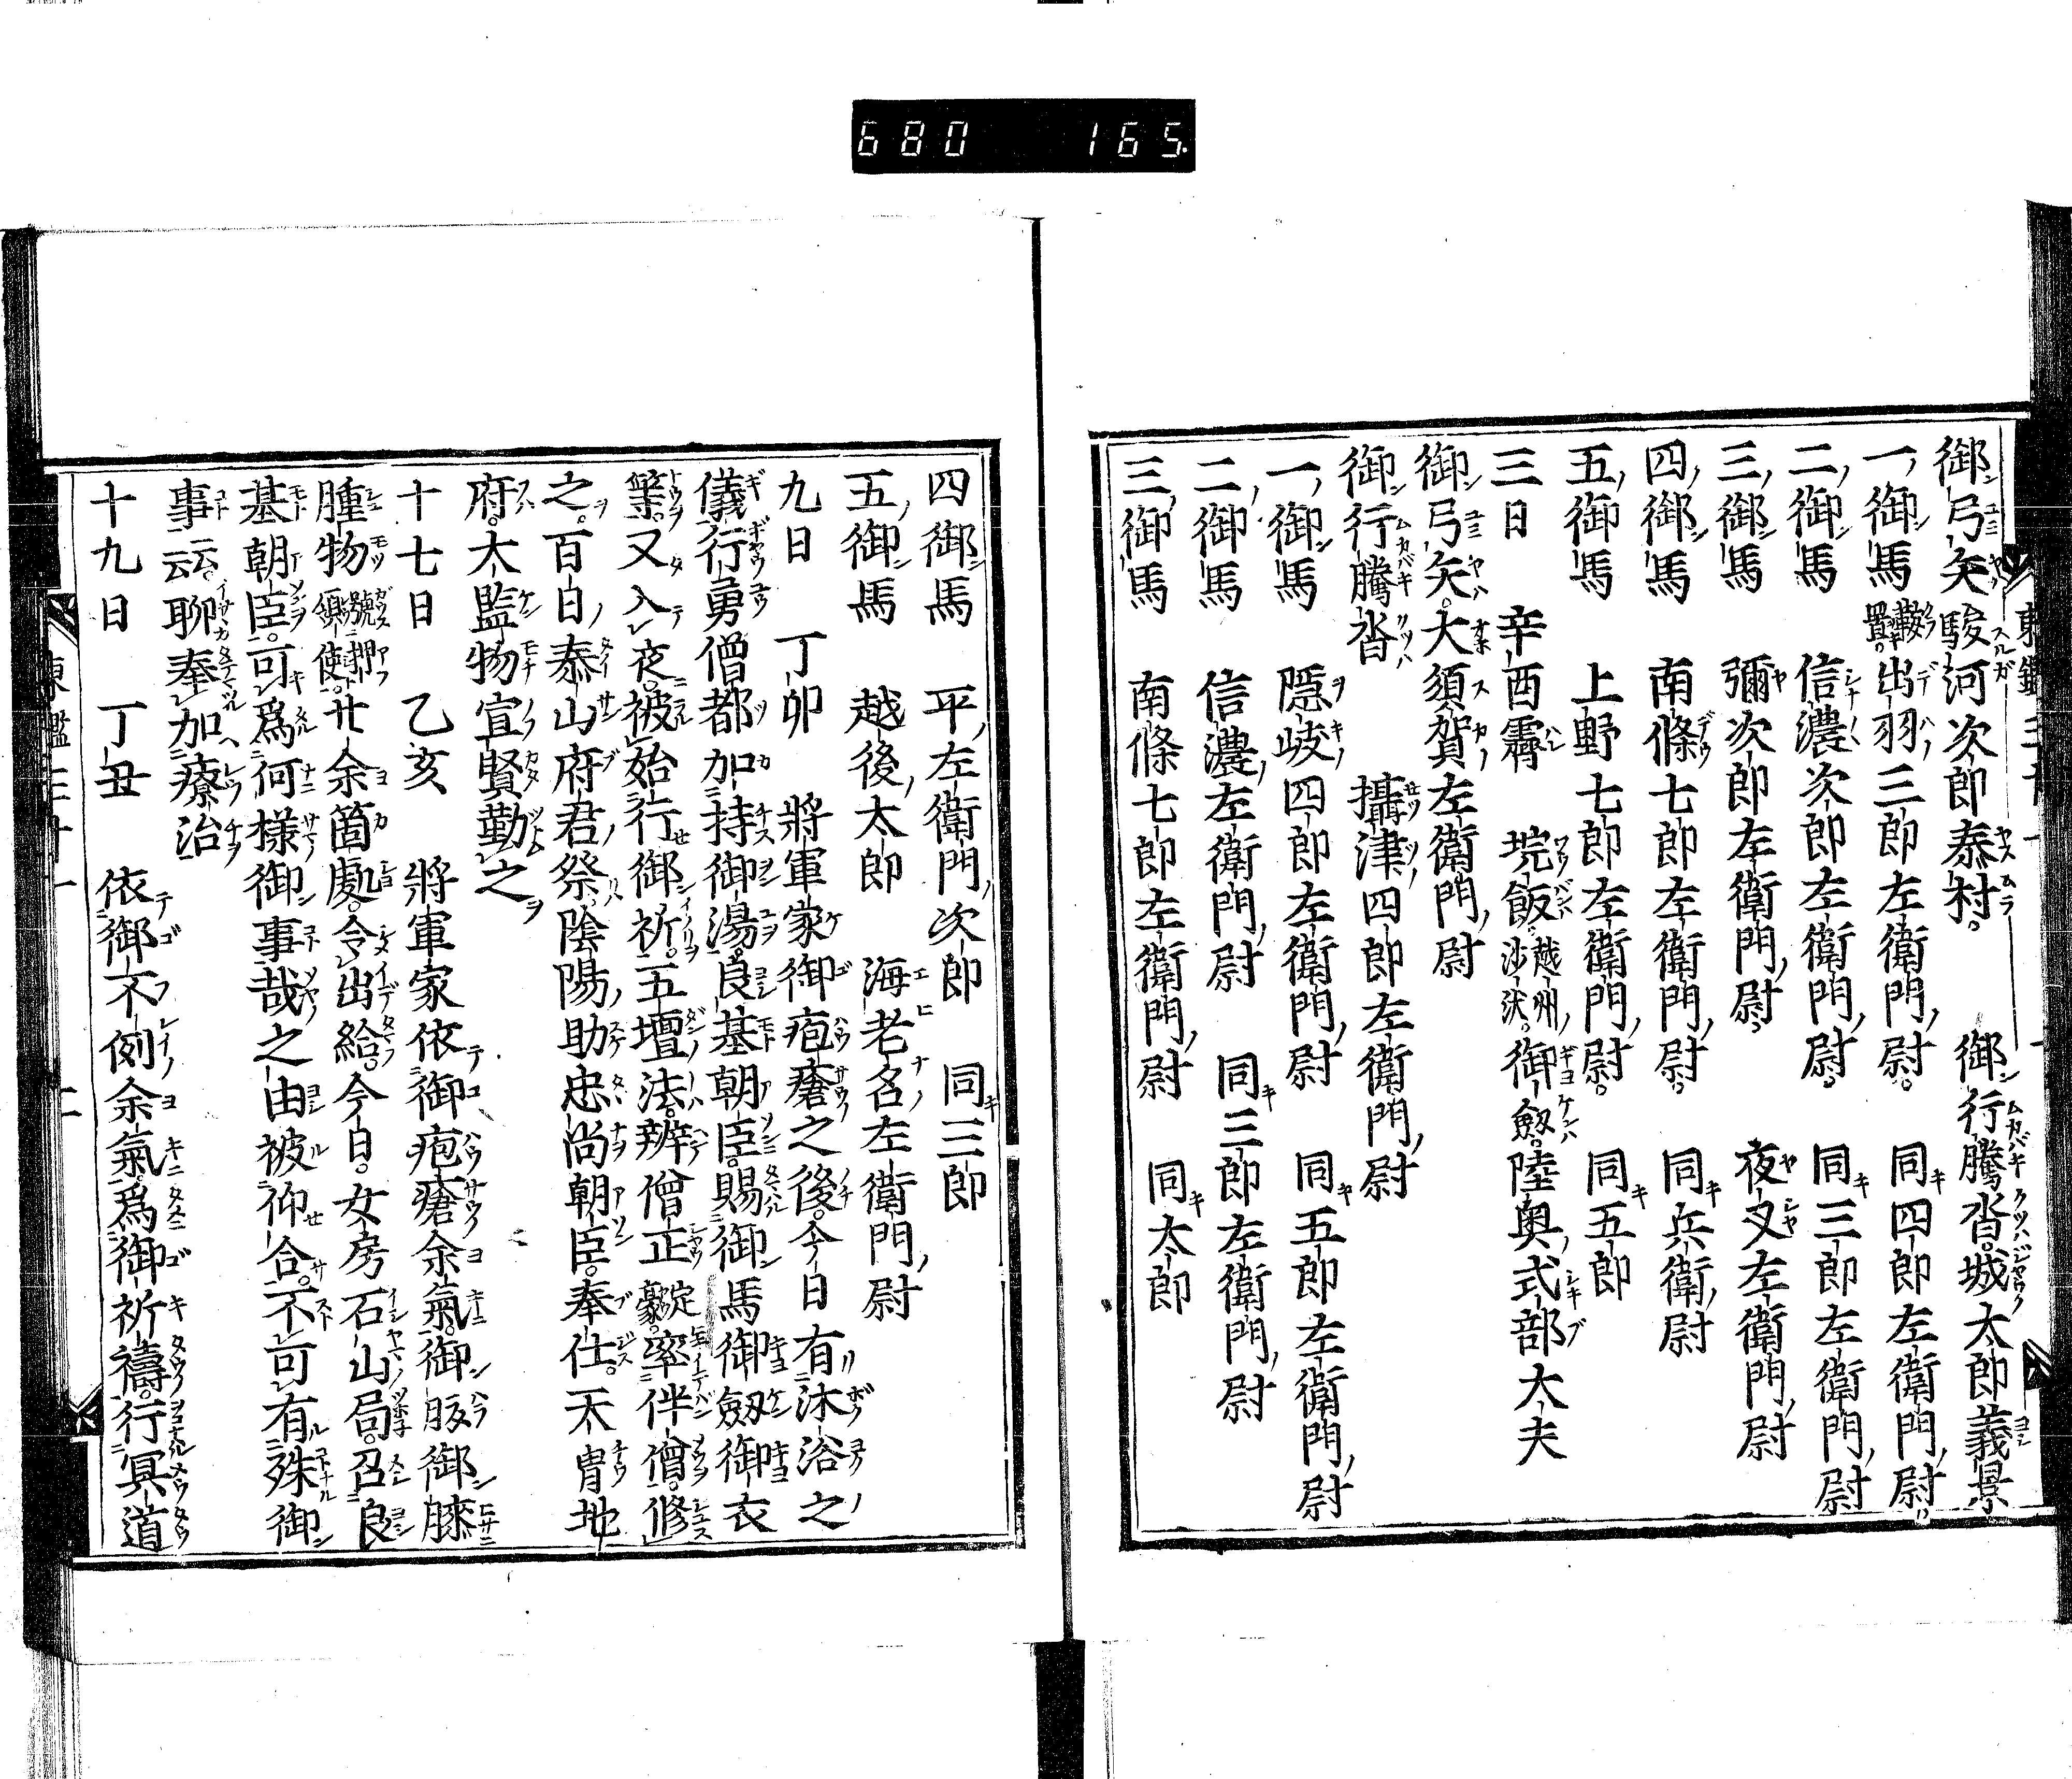 680 165.
御弓矢駿河次郎泰村。 御行騰沓。城太郎義景
一御馬 置鞍。 出羽三郎左衛門尉。 同四郎左衛門尉
二御馬 信濃次郎左衛門尉。 同三郎左衛門尉
三御馬 彌次郎左衛門尉。 夜叉左衛門尉
四御馬 南條七郎左衛門尉。 同兵衛尉
五御馬 上野七郎左衛門尉。 同五郎
三日 辛酉霽 垸飯 越州沙汰。 御劔。陸奥式部大夫
御弓矢。大須賀左衛門尉
御行騰沓 攝津四郎左衛門尉
一御馬 隱岐四郎左衛門尉 同五郎左衛門尉
二御馬 信濃左衛門尉 同三郎左衛門尉
三御馬 南條七郎左衛門尉 同太郎
四御馬 平左衛門次郎 同三郎
五御馬 越後太郎 海老名左衛門尉
九日 丁卯 將軍家御疱瘡之後。今日有沐浴之
儀行勇僧都加持御湯。良基朝臣。賜御馬御劔御衣
等。又入夜。被始行御祈。五壇法。辨僧正 定豪。 率伴僧。修
之。百日泰山府君祭。陰陽助忠尚朝臣。奉仕。天冑地
府。大監物宣賢勤之
十七日 乙亥 將軍家依御疱瘡余氣。御股御膝
腫物 號押領使。 廿余箇處。令出給。今日。女房石山局。召良
基朝臣。可爲何樣御事哉之由被仰合。不可有殊御
事云云。聊奉加療治
十九日 丁丑 依御不例余氣。爲御祈禱。行冥道